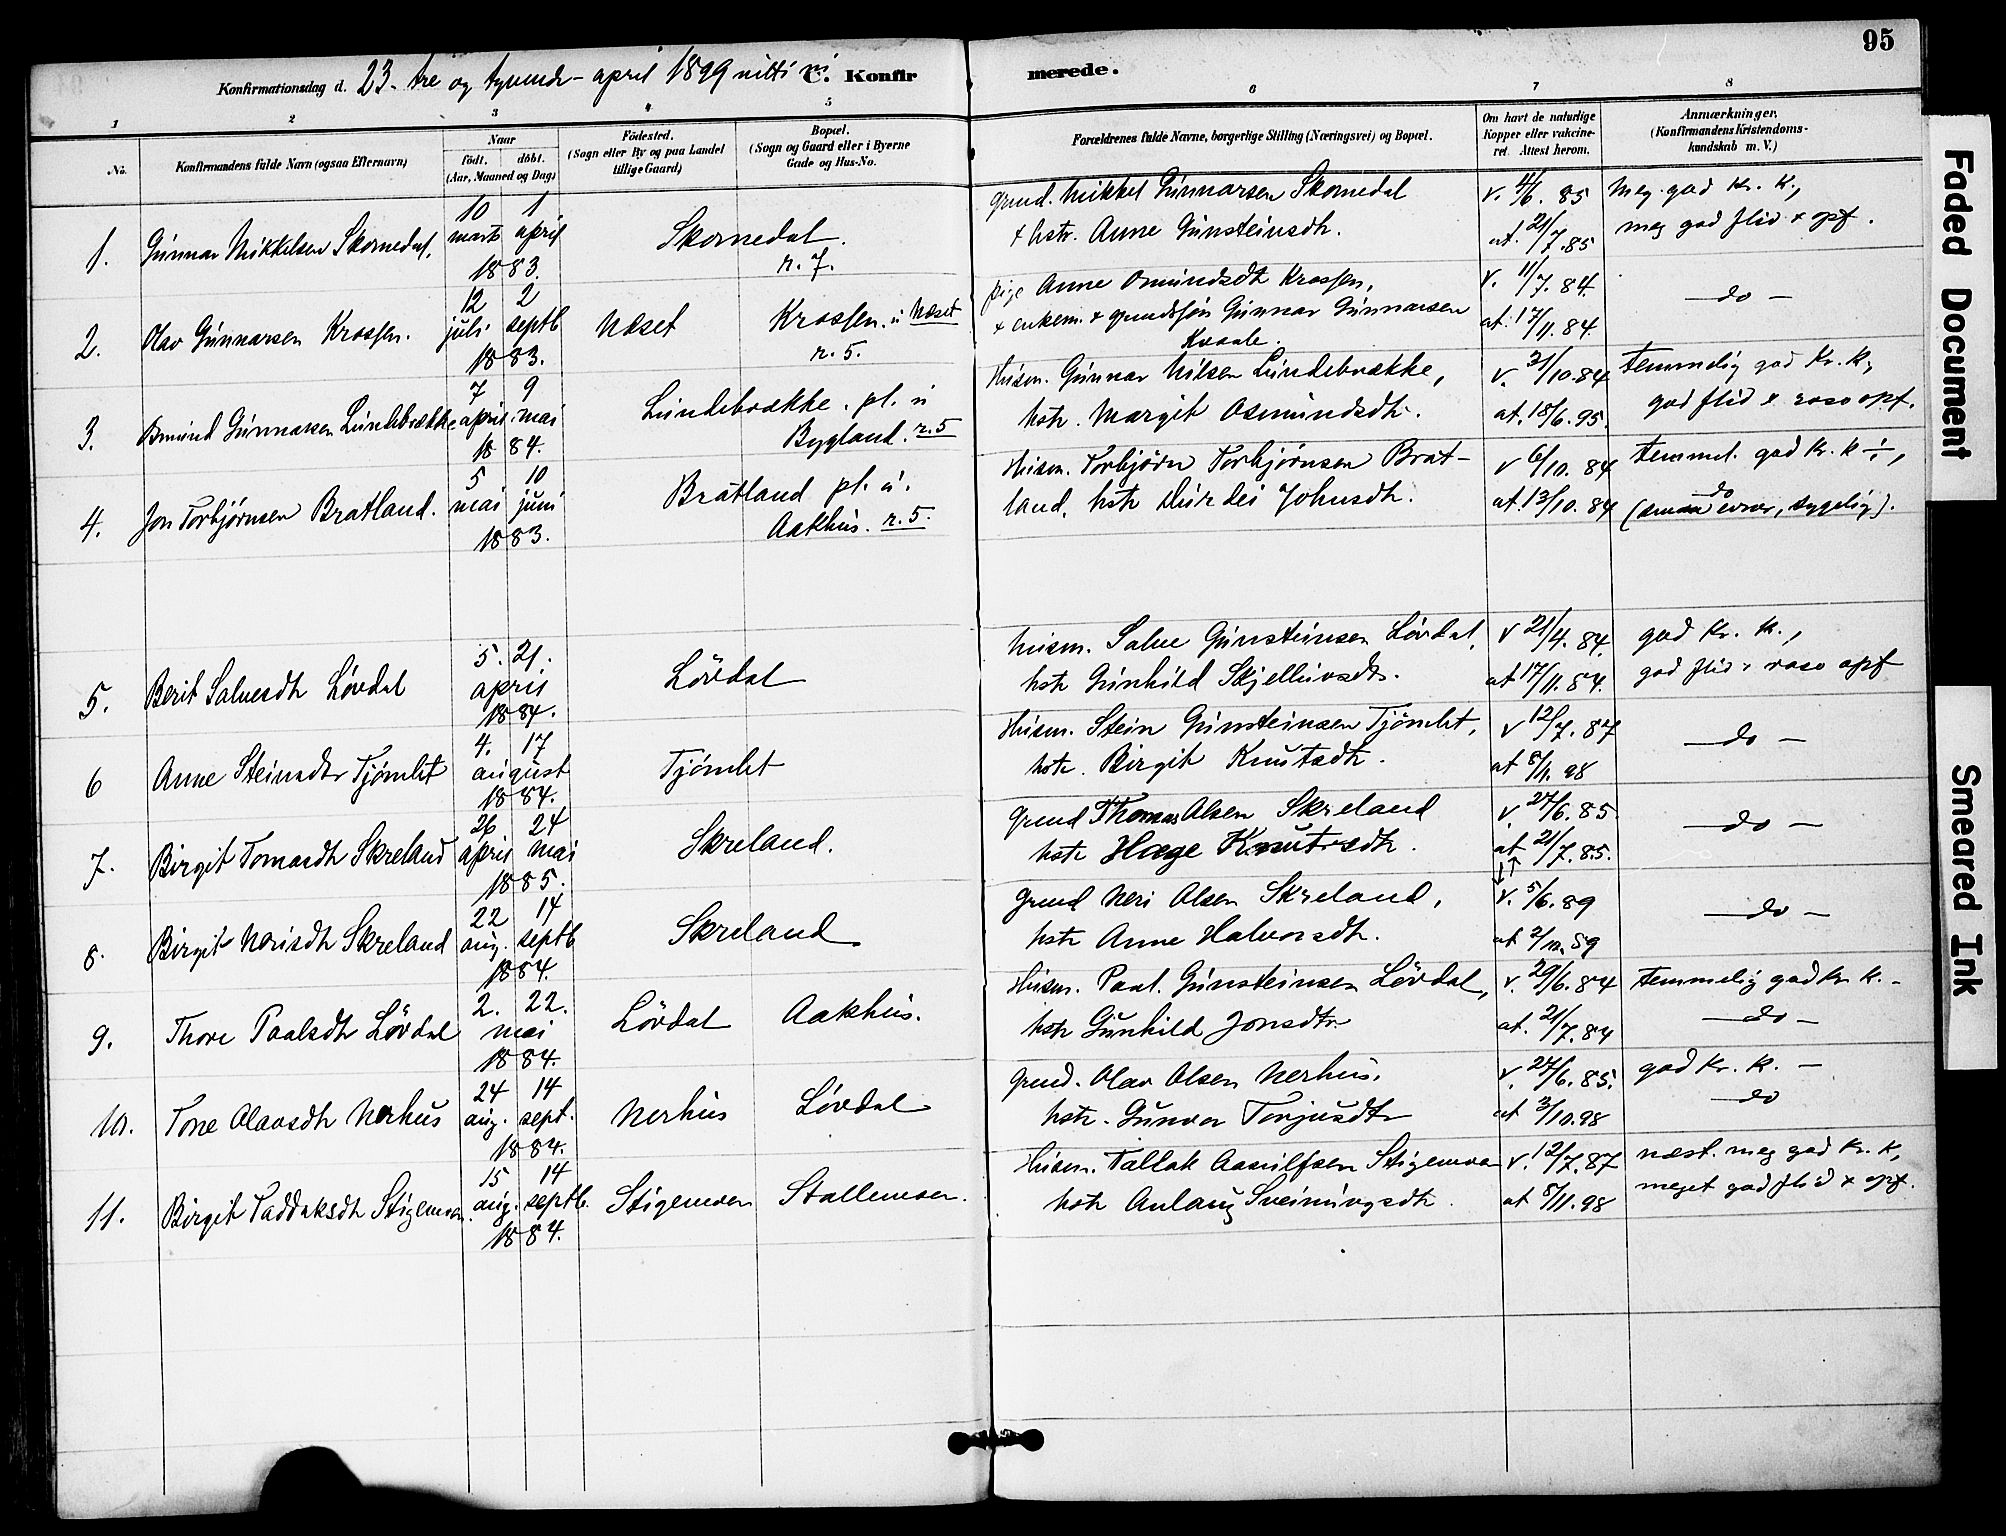 95
Konfirmationsdag d. 23. tre og tyvende april 1899 nitti ni C. Konfirmerede.
1 2 3 4 5 6 7 8
No.
Konfirmandens fulde Navn (ogsaa Efternavn)
Naar
født. døbt.
(Aar, Maaned og Dag)
Fødested.
(Sogn eller By og paa Landet
tillige Gaard)
Bopæl.
(Sogn og Gaard eller i Byerne
Gade og Hus-No.
Forældrenes fulde Navne, borgerlige Stilling (Næringsvei) og Bopæl.
Om havt de naturlige
Kopper eller vakcine-
ret. Attest herom.
Anmærkninger.
(Konfirmandens Kristendoms-
kundskab m. V.)
1. Gunnar Mikkelsen Skomedal.
10 1
marts april
1883.
Skomedal.
r. 7.
Grund. Mikkel Gunnarsen Skomedal
+ hstr. Anne Gunsteinsdtr.
v. 4/6. 85
at. 21/7. 85
meg. god Kr. K.,
meg god flid + opf.
2. Olav Gunnarsen Krossen.
12 2
juli septb
1883.
Næset
Krossen. u Næset
r. 5.
pige Anne Omundsdt Krossen,
+ enkem. + grundsøn Gunnar Gunnarsen
Kvaale.
v. 11/7. 84.
at. 17/11. 84.
— do —
3. Omund Gunnarsen Lundebrække
7 9
april. mai
1884.
Lundebrække. pl. u
Bygland. r. 5
Husm. Gunnar Nilsen Lundebrække,
hstr. Margit Osmundsdtr.
v. 31/10. 84
at. 18/6. 95.
temmelig god Kr. K,
god flid + roso opf.
4. Jon Torbjørnsen Bratland.
5 10
mai juni
1883.
Bratland pl. u.
Aakhus. r. 5.
Husm. Torbjørn Torbjørnsen Brat-
land, hstr Durdei Johnsdtr.
v 6/10. 84
at. 13/10. 84
temmel. god Kr. K ÷,
do
(smaa evner, sygelig).
5. Berit Salvesdtr Løvdal
5. 21.
april
1884.
Løvdal
husm. Salve Gunsteinsen Løvdal,
hstr Gunhild Skjellivsdtr.
v 21/4. 84.
at 17/11. 84.
god Kr. K.,
god flid + roso opf
6 Anne Steinsdtr Tjomlet
4. 17
august
1884.
Tjomlet
Husm. Stein Gunsteinsen Tjomlet,
hstr. Birgit Knutsdtr.
v 12/7. 87
at 8/11. 98
— do —
7. Birgit Tomasdtr Skreland
26 24
april mai
1885.
Skreland.
Grund Thomas Olsen Skreland
hstr Hæge Knutsdtr.
v 27/6. 85.
at 21/7. 85.
— do —
8. Birgit Nerisdtr Skreland
22 14
aug. septb
1884.
Skreland
Grund Neri Olsen Skreland,
hstr Anne Halvorsdtr.
v. 5/6. 89
— do —
9. Thore Paalsdtr Løvdal
2. 22.
mai
1884.
Løvdal Aakhus.
Husm. Paal. Gunsteinsen Løvdal,
hstr Gunhild Jonsdtr
v. 29/6. 84
at. 21/7. 84
temmelig god Kr. K. -
— do —
10. Tone Olavsdtr Nerhus
24 14
aug. sept.
1884.
Nerhus Løvdal
Grund. Olav Olsen Nerhus,
hstr. Gunvor Torjusdtr
v. 27/6. 85.
at 3/10. 98
god Kr. K. —
— do
11. Birgit Taddaksdtr Stigemoen
15 14
aug. septb.
1884.
Stigemoen Stallemoen.
Husm. Tallak Aanulfsen Stigemoen
hstr Anlaug Sveinungsdtr.
v. 12/7. 87
at 8/11. 98
næst. meg god Kr. K,
meget god flid + opf.
Faded Document
Smeared Ink